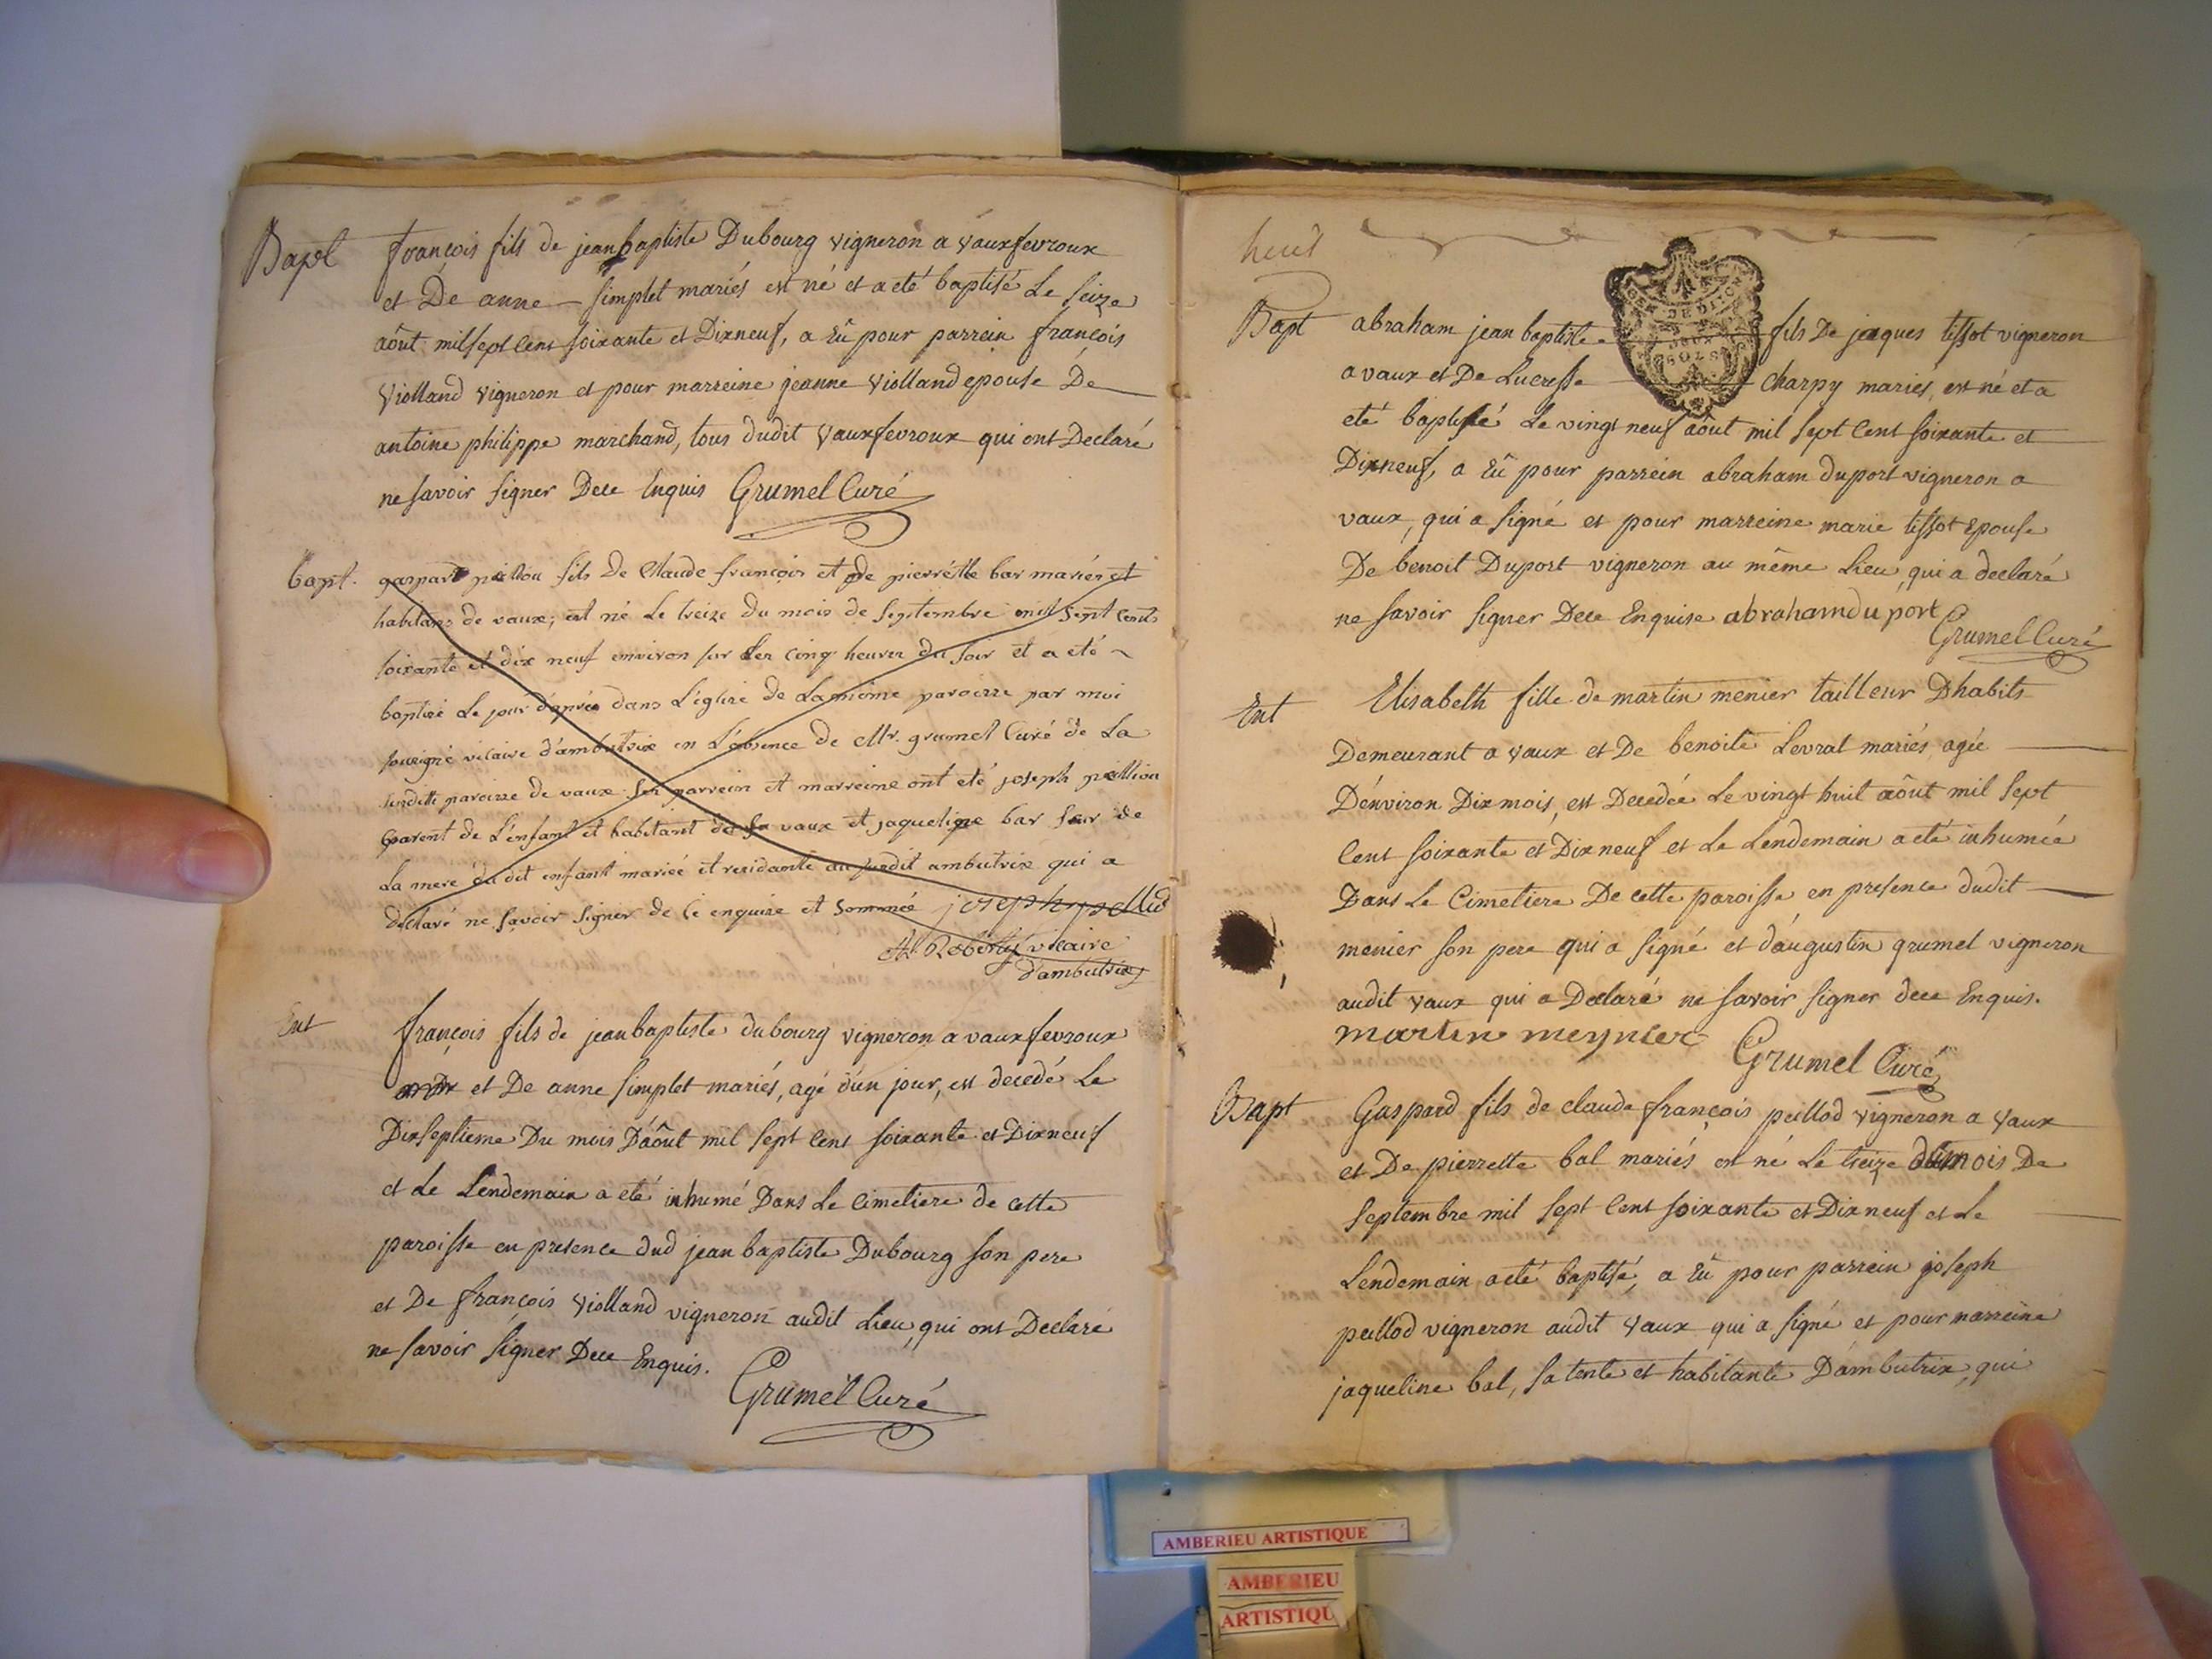 Bapt
françois fils de jean baptiste Dubourg vigneron a vauxfevroux
et De anne — simplet mariés est né et a eté baptisé Le seize
aôut mil sept Cent soixante et Dixneuf, a Eû pour parrein françois
Violland vigneron et pour marreine jeanne Violland epouse De
antoine philippe marchand, tous dudit Vauxfevroux qui ont Declaré
ne savoir signer Dece Enquis Grumel Curé
bapt.
gaspard pellou fils de Claude françois et de pierrette bar mariés et
habitans de vaux; est né Le treize du mois de Septembre mil sept cents
soixante et dix neuf environ sur Les cinq heures du soir et a eté
baptisé Le jour d'après dans L'église de La même paroisse par moi
sousigné vicaire d'ambutrix en L'absence de Mr. grumel Curé de La
susditte paroisse de vaux son parrein et marreine ont eté joseph
parent de L'enfant et habitant de vaux et jaqueline bar sœur de
La mere du dit enfant mariée et residante au susdit ambutrix qui a
déclaré ne savoir signer de Ce enquise et sommée joseph
vicaire
d'ambutrix
Ent
françois fils de jean baptiste dubourg vigneron a vauxfevroux
et De anne simplet mariés, agé d'un jour, est decedé Le
Dixseptieme Du mois D'aôut mil sept Cent soixante et Dixneuf
et Le Lendemain a eté inhumé Dans Le Cimetiere de cette
paroisse en presence dud jean baptiste Dubourg son pere
et De françois Violland vigneron audit Lieu, qui ont Declaré
ne savoir signer Dece Enquis.
Grumel Curé
huit
Bapt
abraham jean baptiste fils De jaques tissot vigneron
a vaux et De Lucresse charpy mariés, est né et a
eté baptisé Le vingt neuf aôut mil sept Cent soixante et
Dixneuf, a Eû pour parrein abraham duport vigneron a
vaux, qui a signé et pour marreine marie tissot Epouse
De benoit Duport vigneron au même Lieu qui a declaré
ne savoir signer Dece Enquise abrahamduport
Grumel Curé
Ent
Elisabeth fille de martin menier tailleur Dhabits
Demeurant a vaux et De benoite Levrat mariés, agée
D'environ Dix mois, est Decedée Le vingt huit aôut mil sept
Cent soixante et Dixneuf et Le Lendemain a eté inhumée
Dans Le Cimetiere De cette paroisse en presence dudit
menier son pere qui a signé et d'augustin grumel vigneron
audit vaux qui a Declaré ne savoir signer dece Enquis.
martin meynier
Grumel Curé
Bapt
Gaspard fils de claude françois peillod vigneron a vaux
et De pierrette bal mariés est né Le treize du mois De
septembre mil sept Cent soixante et Dixneuf et Le
Lendemain a eté baptisé, a Eû pour parrein joseph
peillod vigneron audit vaux qui a signé et pour marreine
jaqueline bal, sa tente et habitante D'ambutrix, qui
AMBERIEU ARTISTIQUE
AMBERIEU
ARTISTIQU